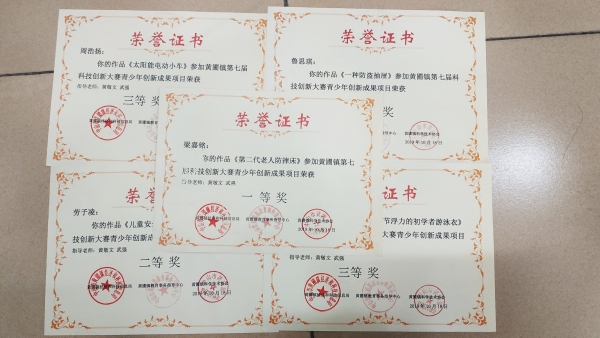 荣誉证书
周浩扬：
你的作品《太阳能电动小车》参加黄圃镇第七届
科技创新大赛青少年创新成果项目荣获
指导老师：黄敬文 武强
三等奖
荣誉证书
鲁思琪：
你的作品《一种防盗抽屉》参加黄圃镇第七届科
技创新大赛青少年创新成果项目荣获
奖
荣誉证书
梁嘉铭：
你的作品《第二代老人防摔床》参加黄圃镇第七
科技创新大赛青少年创新成果项目荣获
导老师：黄敬文 武强
一等奖
劳子凌：
你的作品《儿童安
技创新大赛青少年创新成
指导老师：黄敬文 武
二等奖
黄圃镇科学技术协会
证书
节浮力的初学者游泳衣》
大赛青少年创新成果项目
指导老师：黄敬文 武强
三等奖
黄圃镇教育事务指导中心
黄圃镇科学技术协会